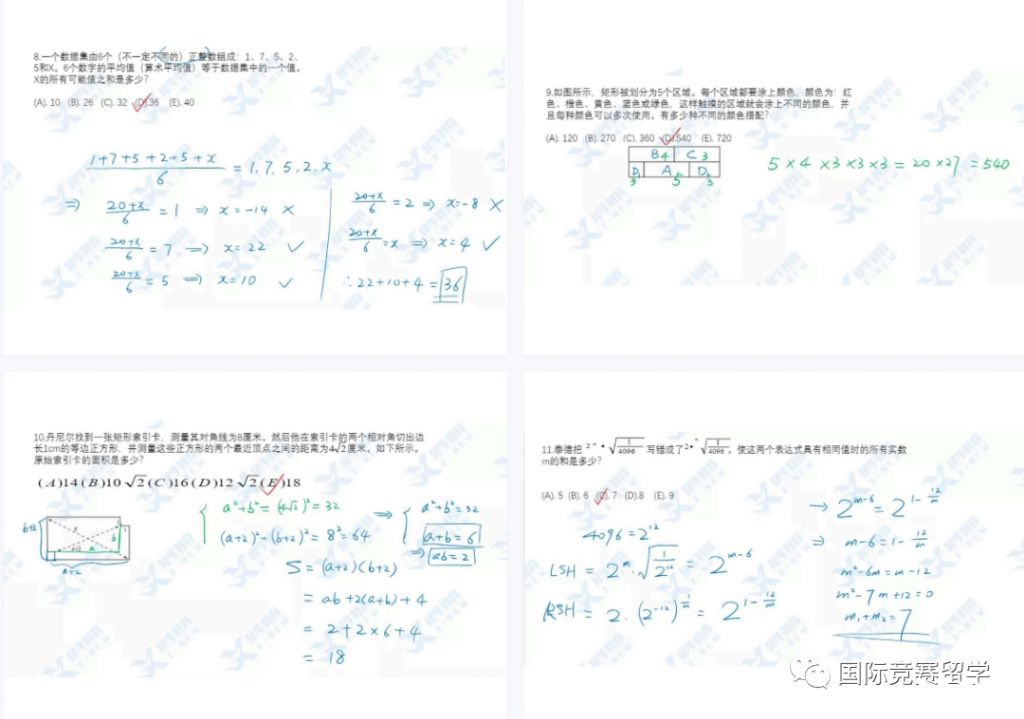 8.一个数据集由6个（不一定不同的）正整数组成：1、7、5、2、
5和X。6个数字的平均值（算术平均值）等于数据集中的一个值。
X的所有可能值之和是多少？
(A). 10 (B). 26 (C). 32 (D).36 (E). 40
(1+7+5+2+5+x)/6 = 1, 7, 5, 2, x
⇒ (20+x)/6 = 1 ⇒ x = -14 ×
(20+x)/6 = 7 ⇒ x = 22 ✓
(20+x)/6 = 5 ⇒ x = 10 ✓
(20+x)/6 = 2 ⇒ x = -8 ×
(20+x)/6 = x ⇒ x = 4 ✓
∴ 22+10+4 = 36
9.如图所示，矩形被划分为5个区域。每个区域都要涂上颜色，颜色为：红
色、橙色、黄色、蓝色或绿色，这样触摸的区域就会涂上不同的颜色，并
且每种颜色可以多次使用。有多少种不同的颜色搭配？
(A). 120 (B). 270 (C). 360 (D).540 (E). 720
B 4 C 3
D 3 A 5 D 3
5 × 4 × 3 × 3 × 3 = 20 × 27 = 540
10.丹尼尔找到一张矩形索引卡，测量其对角线为8厘米。然后他在索引卡的两个相对角切出边
长1cm的等边正方形，并测量这些正方形的两个最近顶点之间的距离为4√2厘米。如下所示。
原始索引卡的面积是多少？
(A)14(B)10√2(C)16(D)12√2(E)18
b+2
a
b
a+2
a²+b² = (4√2)² = 32
(a+2)²+(b+2)² = 8² = 64
⇒ a²+b² = 32
a+b = 6
⇒ ab = 2
S = (a+2)(b+2)
= ab+2(a+b)+4
= 2+2×6+4
= 18
11.泰德把 2ᵐ·√(1/4096) 写错成了2·ᵐ√(1/4096)。使这两个表达式具有相同值时的所有实数
m的和是多少？
(A). 5 (B). 6 (C). 7 (D).8 (E). 9
4096 = 2¹²
LSH = 2ᵐ·√(1/2¹²) = 2^(m-6)
RSH = 2·(2⁻¹²)^(1/m) = 2^(1-12/m)
→ 2^(m-6) = 2^(1-12/m)
⇒ m-6 = 1-12/m
m²-6m = m-12
m²-7m+12 = 0
m₁+m₂ = 7
国际竞赛留学